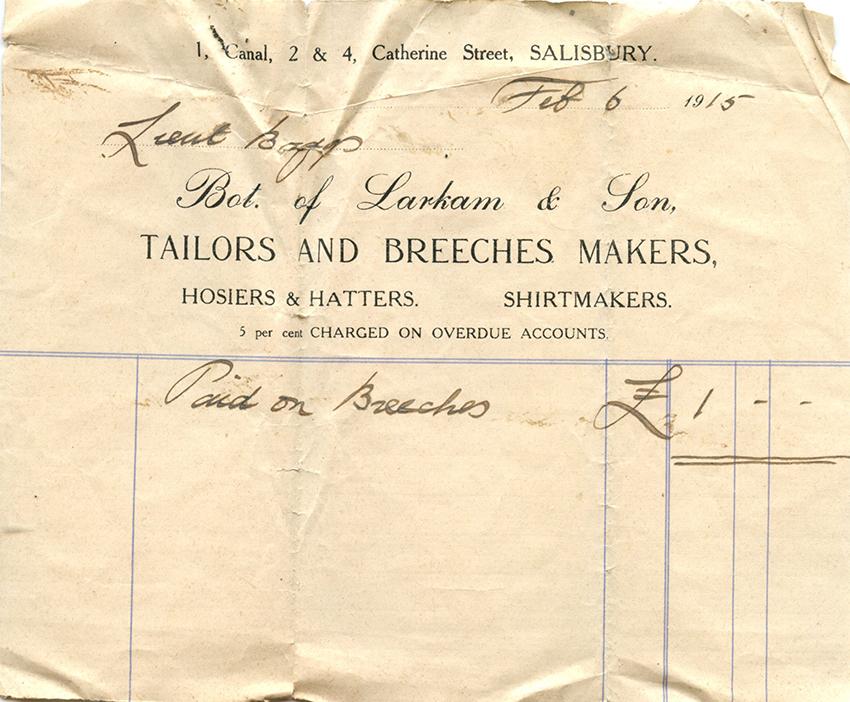 1, Canal, 2 & 4, Catherine Street, SALISBURY.
Feb 6 1915
Lieut
Bot. of Larkam & Son,
TAILORS AND BREECHES MAKERS,
HOSIERS & HATTERS. SHIRTMAKERS.
5 per cent CHARGED ON OVERDUE ACCOUNTS.
Paid on Breeches £ 1 - -